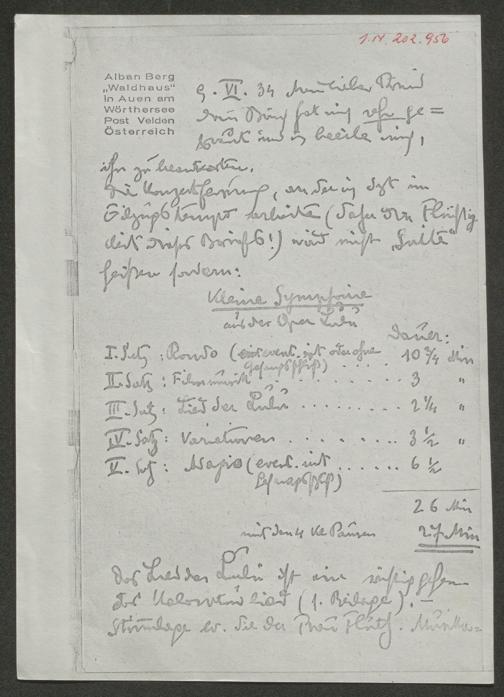 I.N. 202.956
Alban Berg
„Waldhaus"
in Auen am
Wörthersee
Post Velden
Österreich
9. VI. 34 Mein lieber Freund
Dein Brief hat mich sehr ge=
freut und ich beeile mich,
ihn zu beantworten.
Die Konzertfassung, an der ich jetzt im
Eilzugstempo arbeite (daher die Flüchtig
keit dieses Briefs!) wird nicht „Suite"
heißen sondern:
Kleine Symphonie
aus der Oper Lulu
Dauer:
I. Satz : Rondo ( event. mit oder ohne 10 3/4 Min
Gesangsschluß) . . . .
II. Satz : Filmmusik . . . . . . . . 3 "
III. Satz : Lied der Lulu . . . . . . . . . 2 1/4 "
IV. Satz : Variationen . . . . . . . . . 3 1/2 "
V. Satz : Adagio (event. mit . . . . . . 6 1/2
Gesangsschluß)
26 Min
mit den 4 kl Pausen 27 Min
Das Lied der Lulu ist eine
das Koloraturlied (1. Beilage). —
Stimmlage die der Frau Fluth.